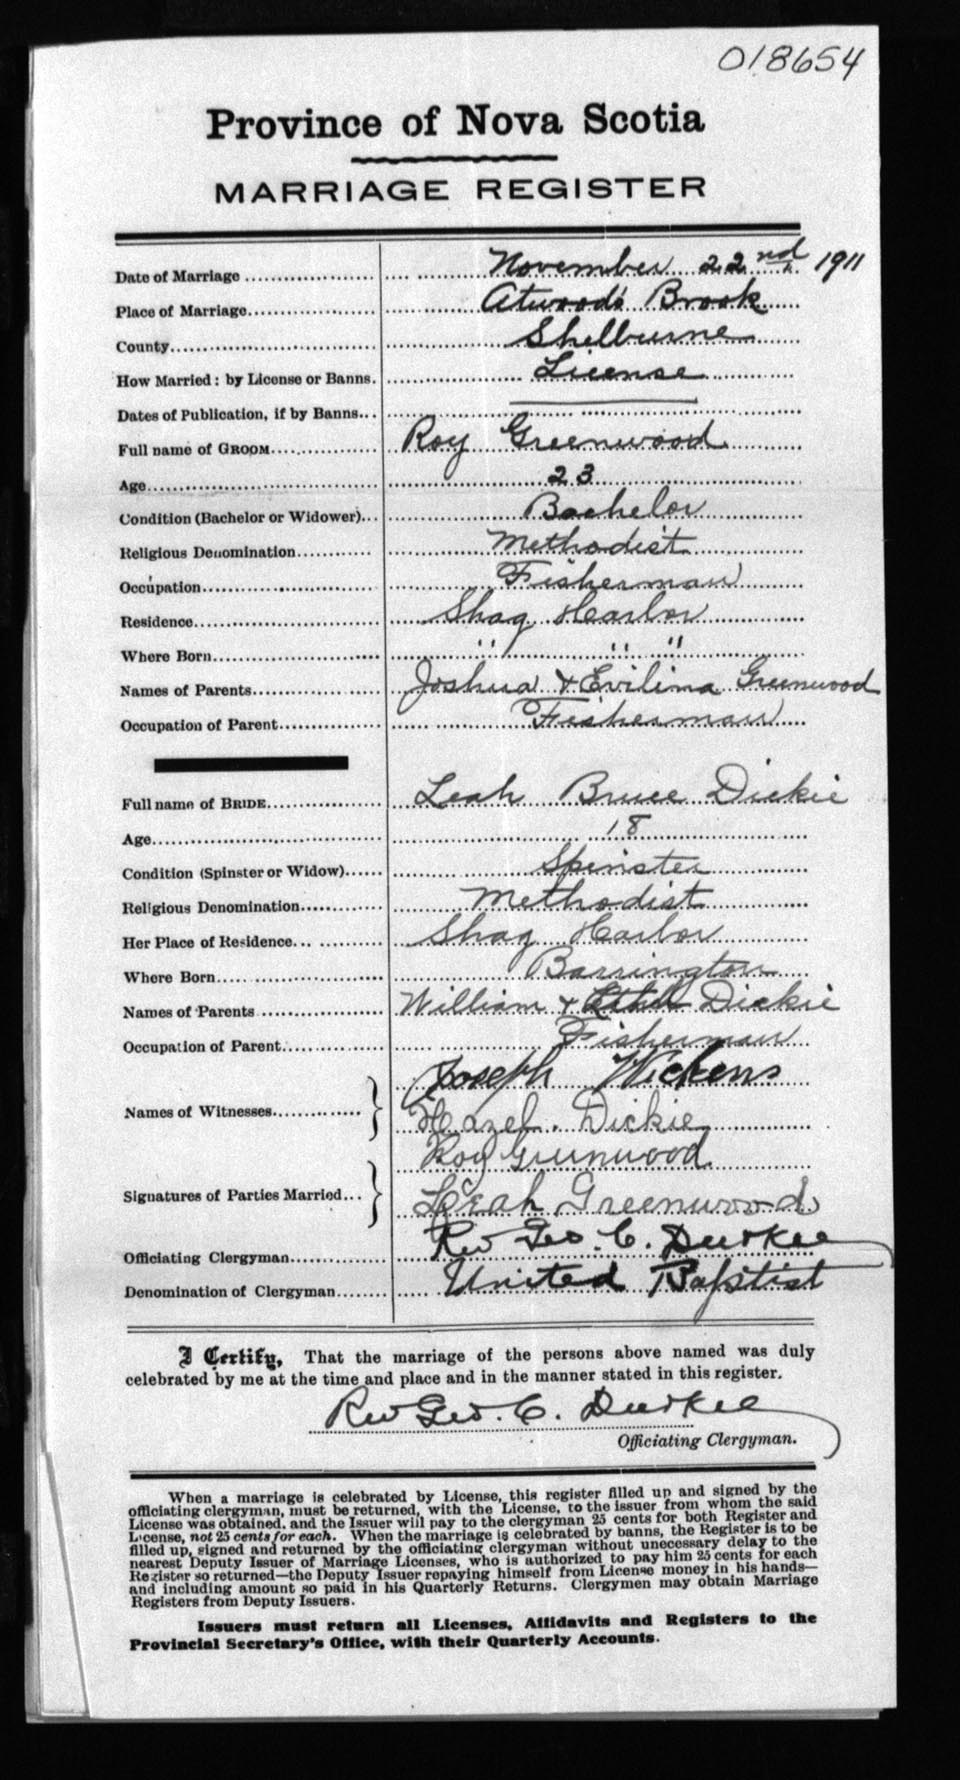 018654
Province of Nova Scotia
MARRIAGE REGISTER
Date of Marriage November 22nd, 1911
Place of Marriage Atwood's Brook
County Shelburne
How Married: by License or Banns. License
Dates of Publication, if by Banns
Full name of GROOM Roy Greenwood
Age 23
Condition (Bachelor or Widower) Bachelor
Religious Denomination Methodist
Occupation Fisherman
Residence Shag Harbor
Where Born " " "
Names of Parents Joshua & Evilina Greenwood
Occupation of Parent Fisherman
Full name of BRIDE Leah Bruce Dickie
Age 18
Condition (Spinster or Widow) Spinster
Religious Denomination Methodist
Her Place of Residence Shag Harbor
Where Born Barrington
Names of Parents William & Ethel Dickie
Occupation of Parent Fisherman
Joseph Wickens
Names of Witnesses
Hazel. Dickie
Roy Greenwood
Signatures of Parties Married
Leah Greenwood
Officiating Clergyman Rev Geo. C. Durkee
Denomination of Clergyman United Baptist
I Certify, That the marriage of the persons above named was duly
celebrated by me at the time and place and in the manner stated in this register.
Rev Geo. C. Durkee
Officiating Clergyman.
When a marriage is celebrated by License, this register filled up and signed by the
officiating clergyman, must be returned, with the License, to the issuer from whom the said
License was obtained, and the Issuer will pay to the clergyman 25 cents for both Register and
License, not 25 cents for each. When the marriage is celebrated by banns, the Register is to be
filled up, signed and returned by the officiating clergyman without unnecessary delay to the
nearest Deputy Issuer of Marriage Licenses, who is authorized to pay him 25 cents for each
Register so returned—the Deputy Issuer repaying himself from License money in his hands—
and including amount so paid in his Quarterly Returns. Clergymen may obtain Marriage
Registers from Deputy Issuers.
Issuers must return all Licenses, Affidavits and Registers to the
Provincial Secretary's Office, with their Quarterly Accounts.